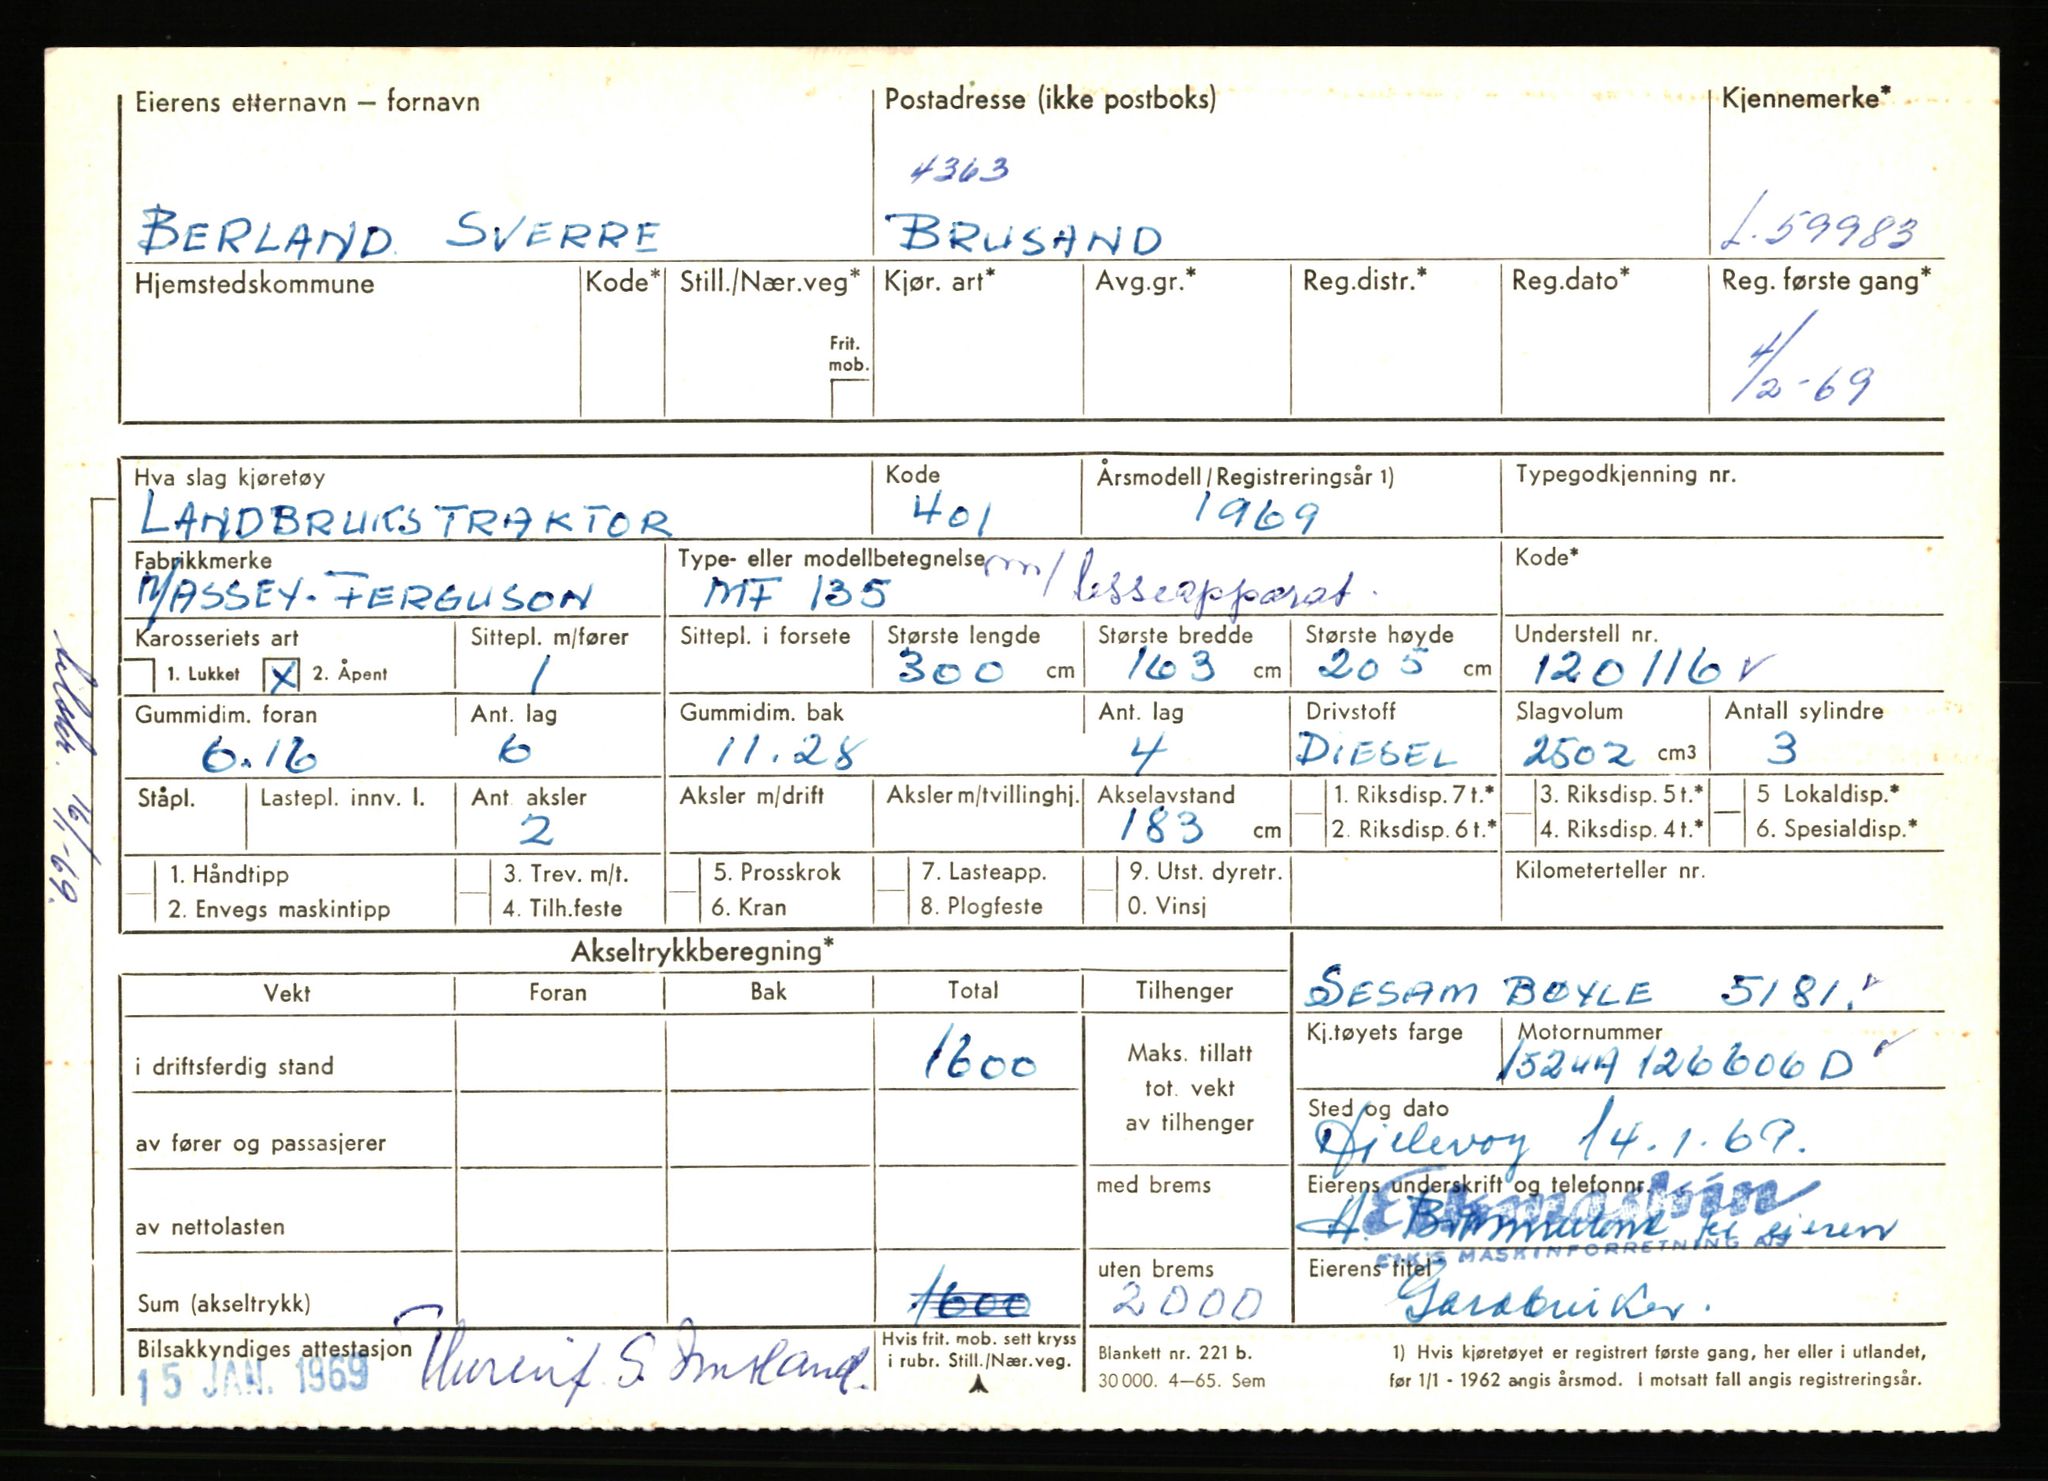 Eierens etternavn – fornavn Postadresse (ikke postboks) Kjennemerke*
4363
BERLAND SVERRE BRUSAND L.59983
Hjemstedskommune Kode* Still./Nær.veg* Kjør. art* Avg.gr.* Reg.distr.* Reg.dato* Reg. første gang*
Frit. mob.
4/2-69
Hva slag kjøretøy Kode Årsmodell/Registreringsår 1) Typegodkjenning nr.
LANDBRUKSTRAKTOR 401 1969
Fabrikkmerke Type- eller modellbetegnelse Kode*
MASSEY-FERGUSON MF 135 m/lesseapparat.
Karosseriets art Sittepl. m/fører Sittepl. i forsete Største lengde Største bredde Største høyde Understell nr.
1. Lukket X 2. Åpent 1 300 cm 163 cm 205 cm 120116 v
Gummidim. foran Ant. lag Gummidim. bak Ant. lag Drivstoff Slagvolum Antall sylindre
6.16 6 11.28 4 DIESEL 2502 cm3 3
Ståpl. Lastepl. innv. l. Ant. aksler Aksler m/drift Aksler m/tvillinghj. Akselavstand 1. Riksdisp. 7 t.* 3. Riksdisp. 5 t.* 5 Lokaldisp.*
2 183 cm 2. Riksdisp. 6 t.* 4. Riksdisp. 4 t.* 6. Spesialdisp.*
1. Håndtipp 3. Trev. m/t. 5. Prosskrok 7. Lasteapp. 9. Utst. dyretr. Kilometerteller nr.
2. Envegs maskintipp 4. Tilh.feste 6. Kran 8. Plogfeste 0. Vinsj
16/1-69.
Akseltrykkberegning*
Vekt Foran Bak Total Tilhenger SESAM BØYLE 5181. v
i driftsferdig stand 1600 Maks. tillatt tot. vekt av tilhenger
Kj.tøyets farge Motornummer
152UA 126606 D v
av fører og passasjerer Sted og dato
14.1.69.
av nettolasten med brems Eierens underskrift og telefonnr.
Eikmaskin
EIKS MASKINFORRETNING A/S
Sum (akseltrykk) 1600 uten brems 2000 Eierens titel
Gardbruker.
Bilsakkyndiges attestasjon
15 JAN. 1969
Hvis frit. mob. sett kryss
i rubr. Still./Nær.veg.
Blankett nr. 221 b.
30 000. 4–65. Sem
1) Hvis kjøretøyet er registrert første gang, her eller i utlandet,
før 1/1 - 1962 angis årsmod. I motsatt fall angis registreringsår.